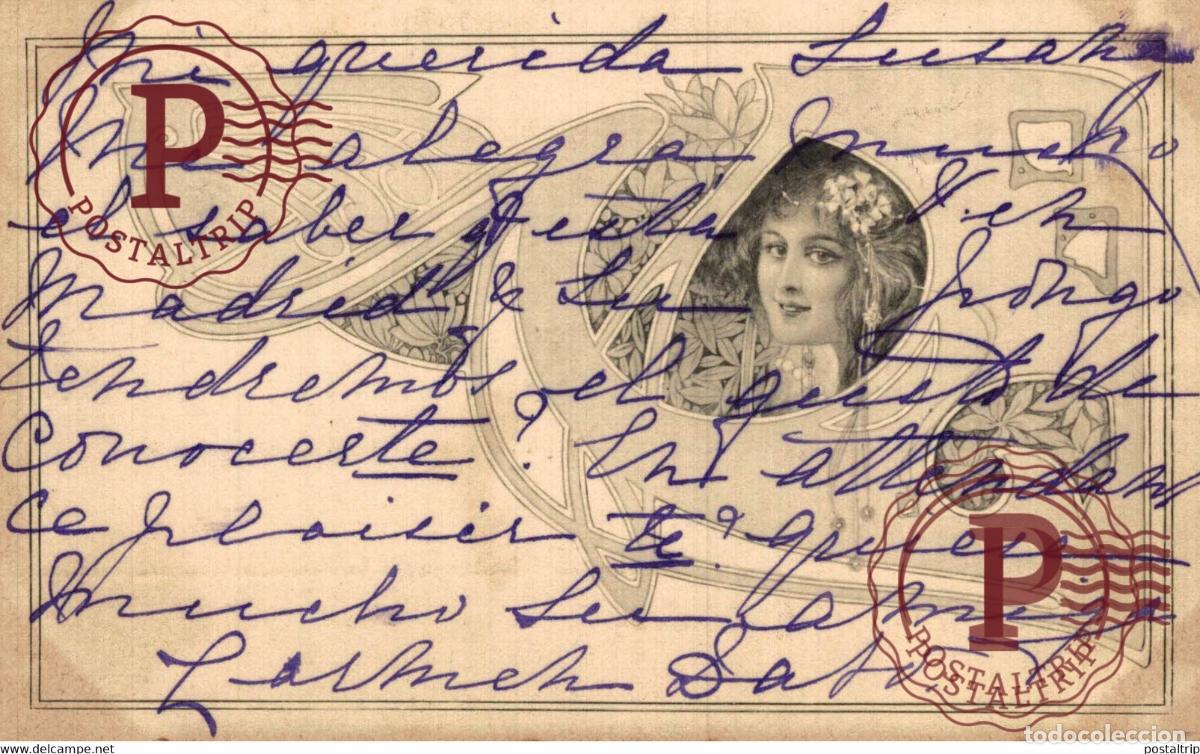 Mi querida Susana
Me alegra mucho
el saber esta V. en
Madrid &
tendremos el gusto de
conocerte? En attendant
ce plaisir te? quiere
mucho su amiga
Carmen
P
POSTALTRIP
P
POSTALTRIP
POSTALTRIP
todocoleccion
www.delcampe.net
postaltrip